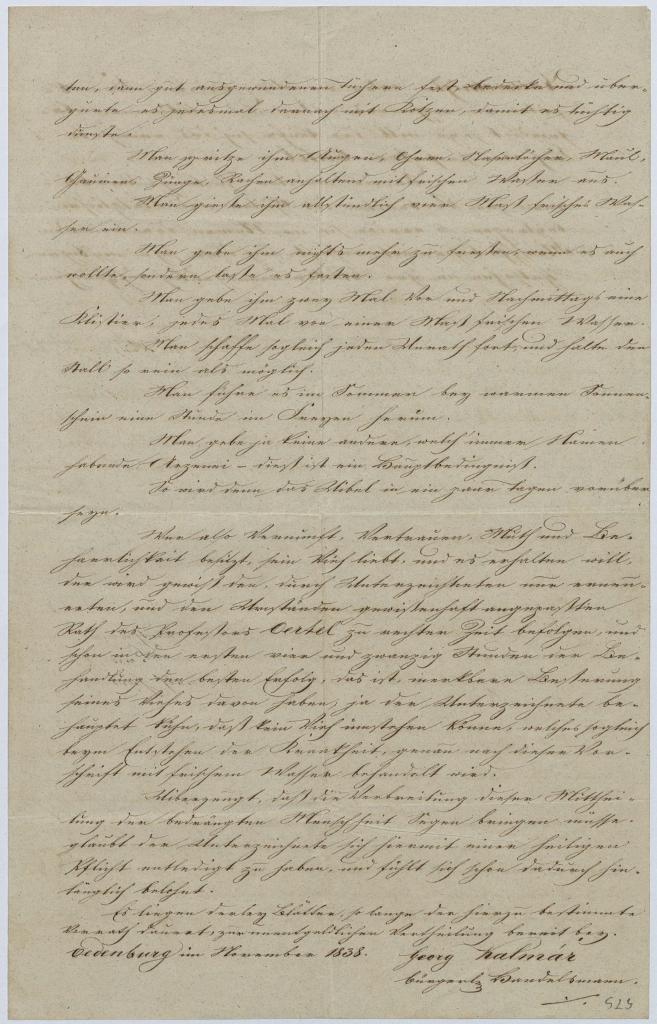 ten, dann gut ausgewundenen Tüchern fest, bedecke und über-
gurte es jedesmal darnach mit Kotzen, damit es tüchtig
dünste.
Man spritze ihm Augen, Ohren, Nasenlöcher, Maul,
Gaumen, Zunge, Rachen anhaltend mit frischen Wasser aus.
Man gieße ihm allstündlich vier Maß frisches Was-
ser ein.
Man gebe ihm nichts mehr zu fressen, wenn es auch
wollte, sondern lasse es fasten.
Man gebe ihm zwey Mal Vor und Nachmittags eine
Klistier, jedes Mal von einer Maß frischen Wasser.
Man schaffe sogleich jeden Unrath fort, und halte den
Stall so rein als möglich.
Man führe es im Sommer bey warmen Sonnen-
schein eine Stunde im Freyen herum.
Man gebe ja keine andere, welch' immer Namen
habende Arzenei – dieß ist ein Hauptbedingniß.
So wird denn das Uibel in ein paar Tagen vorüber
seyn.
Wer also Vernunft, Vertrauen, Muth und Be-
harrlichkeit besitzt, sein Vieh liebt, und es erhalten will,
der wird gewiß den, durch Unterzeichneten nur erneu-
erten, und den Umständen gewissenhaft angepaßten
Rath des Professors Oertel zu rechter Zeit befolgen, und
schon in den ersten vier und zwanzig Stunden der Be-
handlung den besten Erfolg, das ist, merkbare Besserung
seines Viehes davon haben, ja der Unterzeichnete be-
hauptet kühn, daß kein Vieh umstehen könne, welches sogleich
beym Entstehen der Krankheit, genau nach dieser Vor-
schrift mit frischem Wasser behandelt wird.
Uiberzeugt, daß die Verbreitung dieser Mitthei-
lung der bedrängten Menschheit Segen bringen müsse,
glaubt der Unterzeichnete sich hiermit einer heiligen
Pflicht entledigt zu haben, und fühlt sich schon dadurch hin-
länglich belohnt.
Es liegen derley Blätter, so lange der hierzu bestimmte
Vorrath dauert, zur unentgeldlichen Vertheilung bereit bey.
Oedenburg im November 1838. Georg Kalmár
bürgerl. Handelsmann.
575